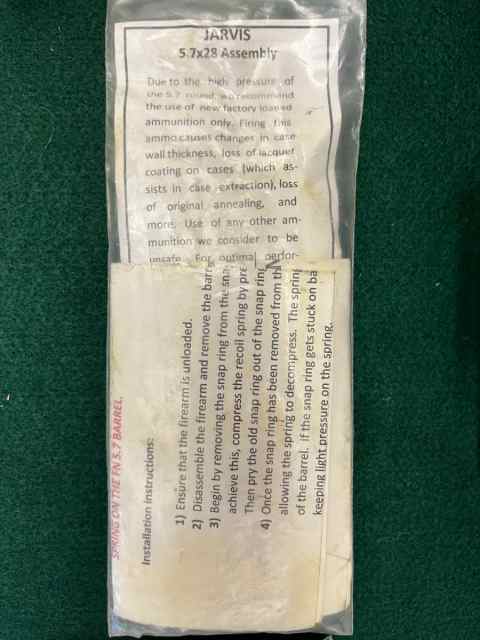 JARVIS
5.7x28 Assembly
Due to the high pressure of
the 5.7 round, we recommend
the use of new factory loaded
ammunition only. Firing this
ammo causes changes in case
wall thickness, loss of lacquer
coating on cases (which as-
sists in case extraction), loss
of original annealing, and
more. Use of any other am-
munition we consider to be
unsafe. For optimal perfor-
SPRING ON THE FN 5.7 BARREL.
Installation instructions:
1) Ensure that the firearm is unloaded.
2) Disassemble the firearm and remove the barre
3) Begin by removing the snap ring from the snap
achieve this, compress the recoil spring by pre
Then pry the old snap ring out of the snap ring
4) Once the snap ring has been removed from th
allowing the spring to decompress. The spring
of the barrel. If the snap ring gets stuck on ba
keeping light pressure on the spring.